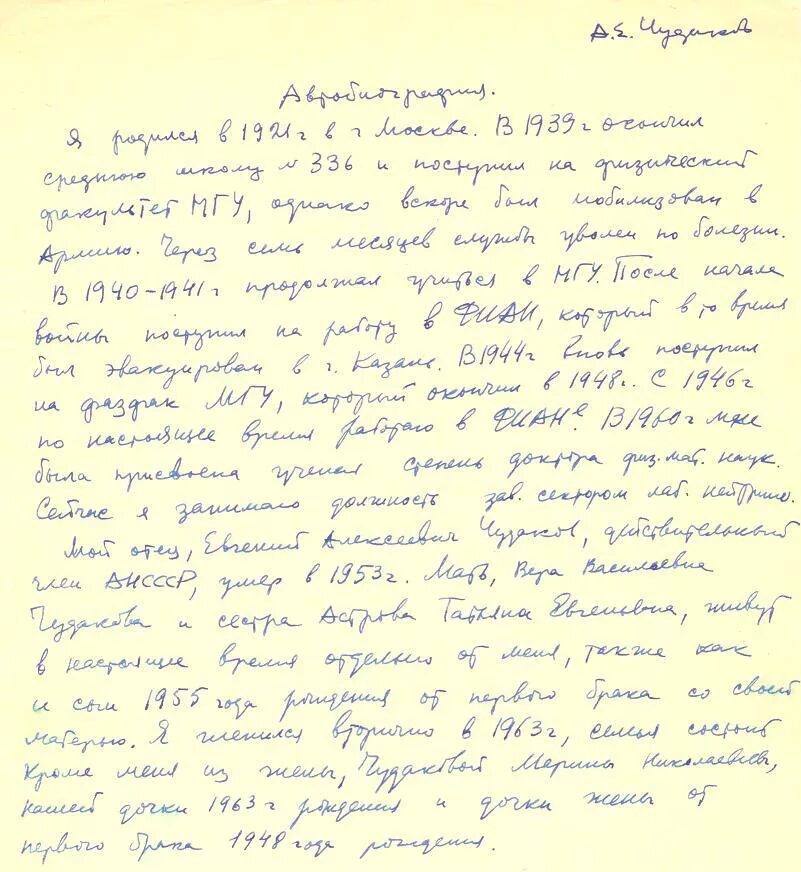 А.Е. Чудаков
Автобиография.
Я родился в 1921г в г Москве. В 1939г окончил
среднюю школу № 336 и поступил на физический
факультет МГУ, однако вскоре был мобилизован в
Армию. Через семь месяцев службы уволен по болезни.
В 1940-1941г продолжал учиться в МГУ. После начала
войны поступил на работу в ФИАН, который в то время
был эвакуирован в г. Казань. В 1944г вновь поступил
на физфак МГУ, который окончил в 1948г. С 1946г
по настоящее время работаю в ФИАНе. В 1960г мне
была присвоена ученая степень доктора физ.мат. наук.
Сейчас я занимаю должность зав. сектором лаб. нейтрино.
Мой отец, Евгений Алексеевич Чудаков, действительный
член АНСССР, умер в 1953г. Мать, Вера Васильевна
Чудакова и сестра Астрова Татьяна Евгеньевна, живут
в настоящее время отдельно от меня, также как
и сын 1955 года рождения от первого брака со своей
матерью. Я женился вторично в 1963г, семья состоит
кроме меня из жены, Чудаковой Марины Николаевны,
нашей дочки 1963г рождения и дочки жены от
первого брака 1948 года рождения.